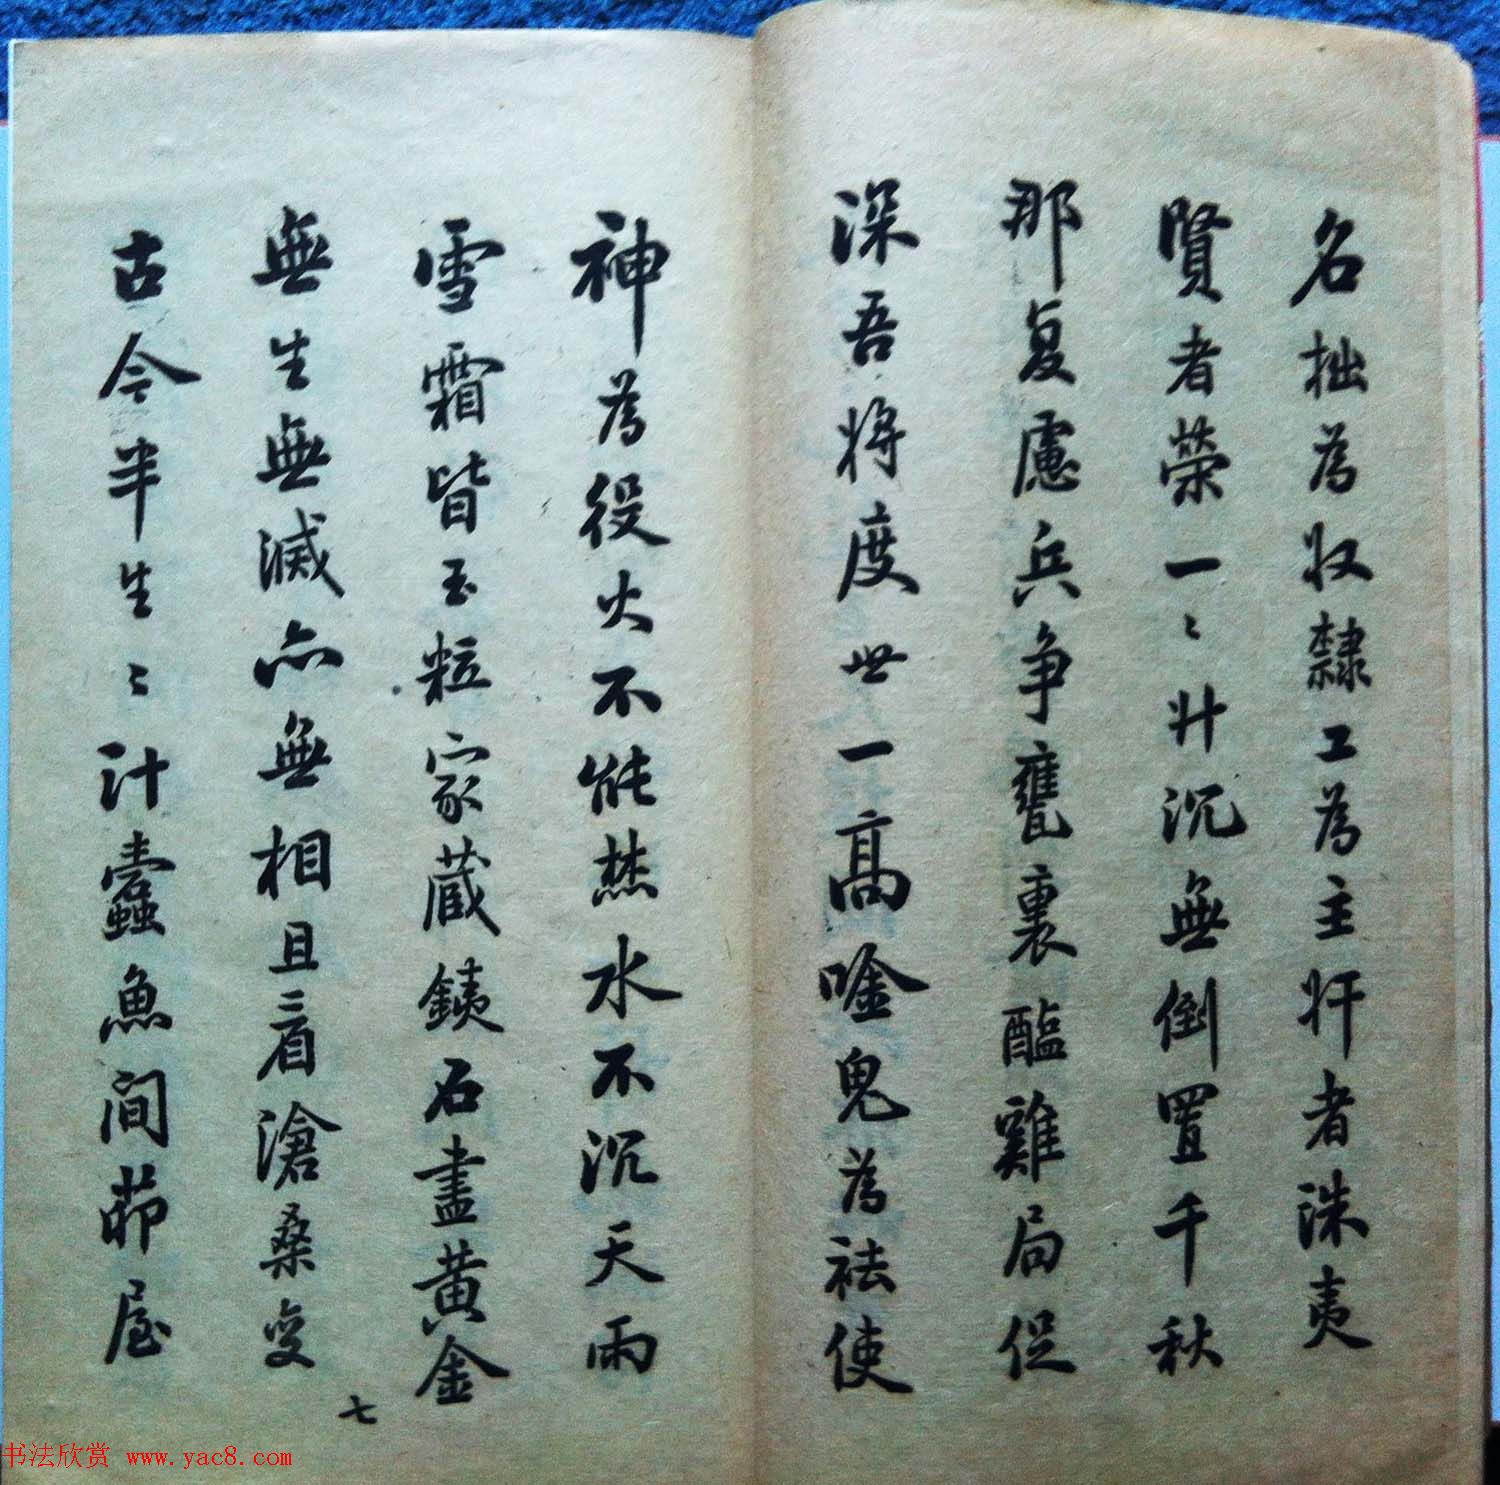 名拙為奴隸工為主奸者誅夷
賢者榮一〻升沉無倒置千秋
那复慮兵争甕裏醯雞局促
深吾将度世一高唫鬼為袪使
神為役火不能焚水不沉天雨
雪霜皆玉粒家藏銕石盡黄金
無生無滅亦無相且看滄桑变
古今半生〻計蠹魚间茆屋
七
书法欣赏 www.yac8.com